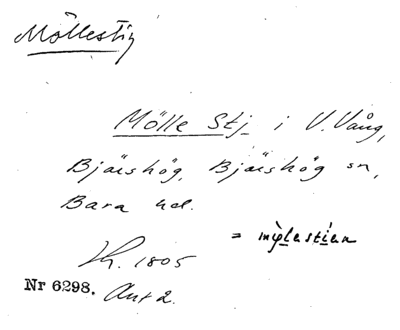 Möllestig
Mölle Stj i V. Vång,
Bjärshög, Bjärshög sn,
Bara hd.
= mølestien
Kh. 1805
Nr 6298. Akt 2.